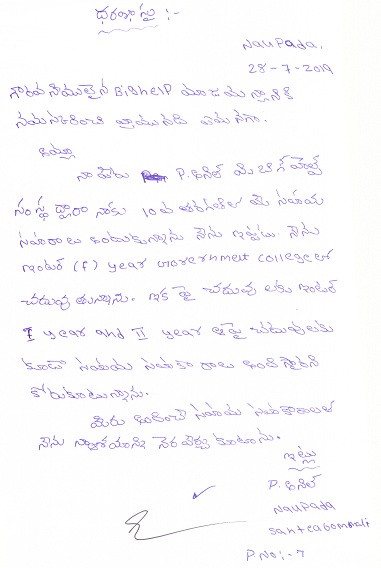 ధరఖాస్తు :-
Naupada,
28-7-2019
గౌరవనీయులైన Bighelp యాజమాన్యానికి
నమస్కరించి వ్రాయునది ఏమనగా.
అయ్యా
నా పేరు P. అనిల్ మీ బిగ్ హెల్ప్
సంస్థ ద్వారా నాకు 10వ తరగతిలో మీ సహాయ
సహకారాలు అందుకున్నాను నేను ఇప్పుడు నేను
ఇంటర్ (f) year Government college లో
చదువుతున్నాను. ఇక పై చదువులకు ఇంటర్
I year and II year ఆపై చదువులకు
కూడా సహాయ సహకారాలు అందిస్తారని
కోరుకుంటున్నాను.
మీరు అందించే సహాయ సహకారాలతో
నేను నా ఆశయాన్ని నెరవేర్చుకుంటాను.
ఇట్లు
P. అనిల్
Naupada
santhabommali
P.No:-7